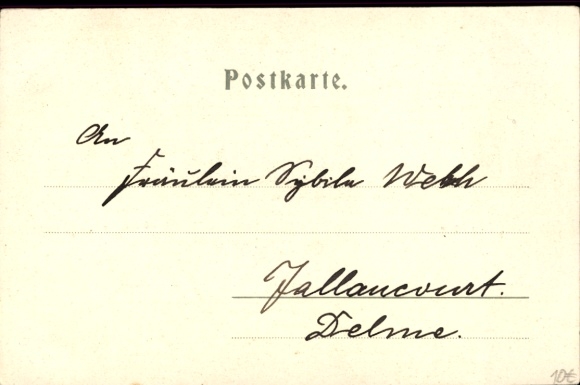 Postkarte.
An
Fräulein Sybile Welsh
Jallaucourt.
Delme.
10€